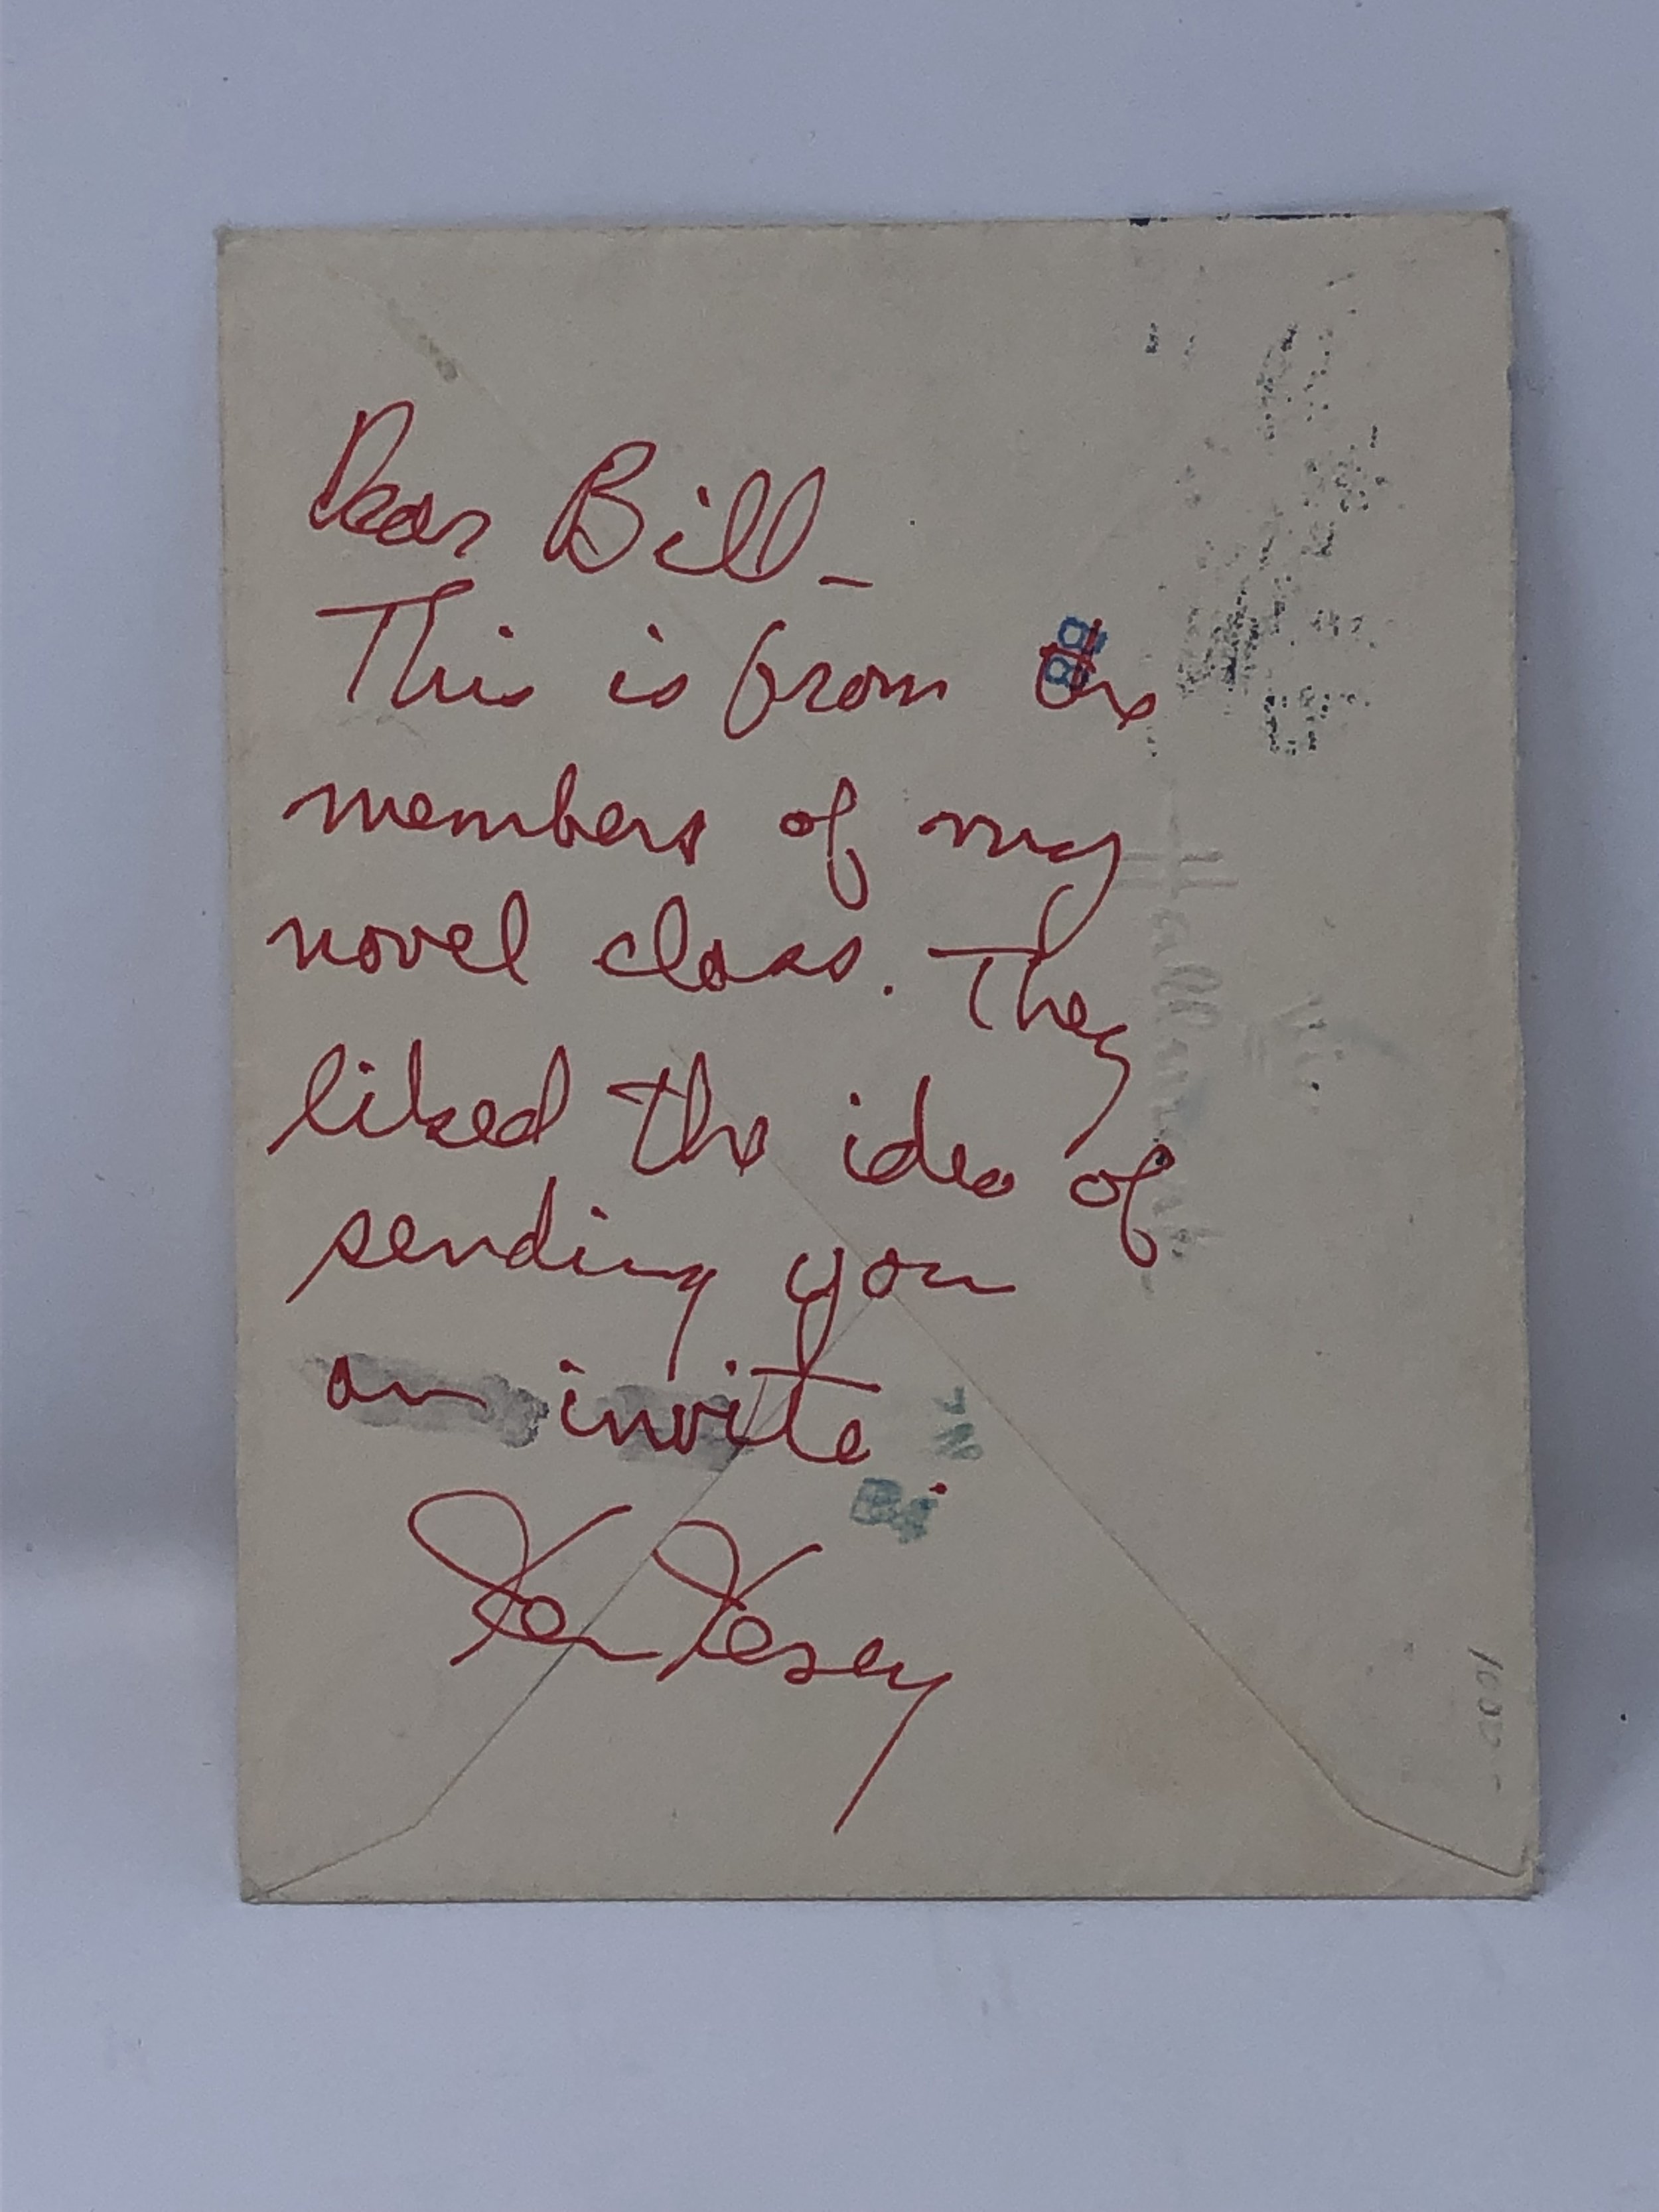 Dear Bill -
This is from the
members of my
novel class. They
liked the idea of
sending you
an invite.
Ken Kesey
Hallmark